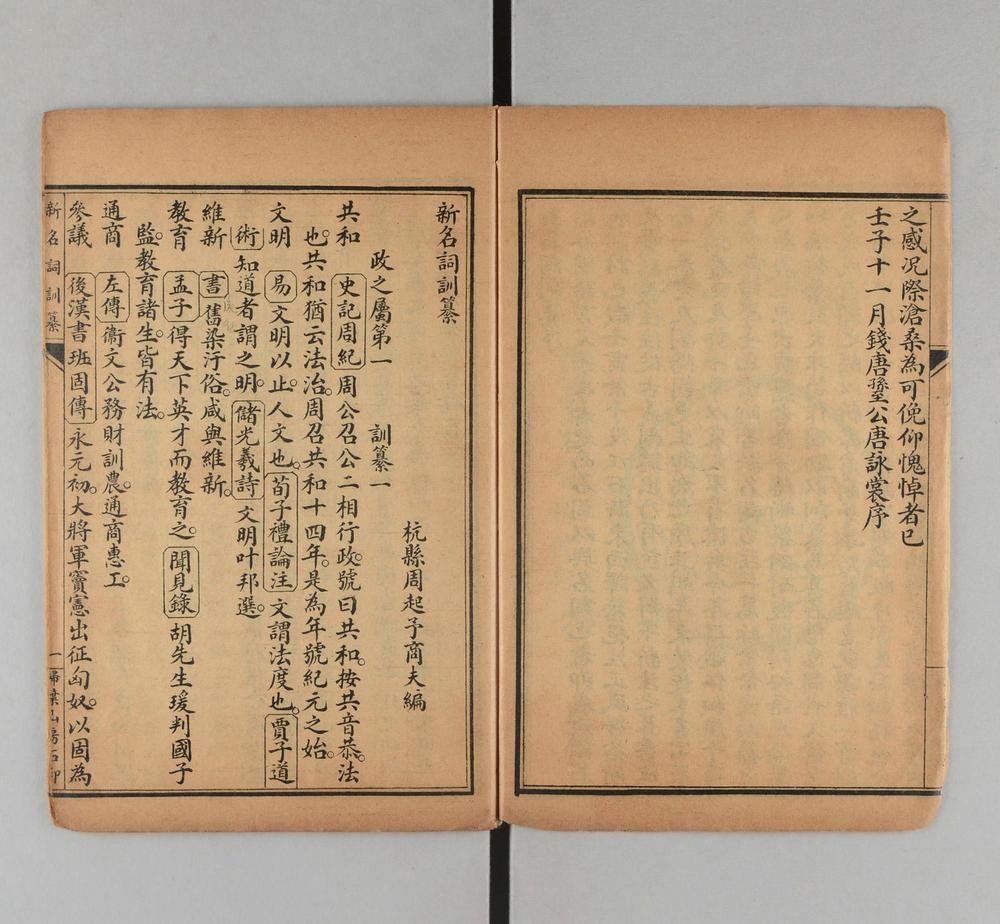 之感况際滄桑為可俛仰愧悼者已
壬子十一月錢唐鞏公唐詠裳序
新名詞訓纂
杭縣周起予商夫編
政之屬第一 訓纂一
共和 史記周紀 周公召公二相行政。號曰共和。按共音恭。法
也。共和猶云法治。周召共和十四年。是為年號紀元之始。
文明 易 文明以止。人文也。 荀子禮論注 文謂法度也。 賈子道
術 知道者謂之明。 儲光羲詩 文明叶邦選。
維新 書 舊染汙俗。咸與維新。
教育 孟子 得天下英才而教育之。 聞見錄 胡先生瑗判國子
監。教育諸生。皆有法。
通商 左傳 衞文公務財訓農。通商惠工。
參議 後漢書班固傳 永元初。大將軍竇憲出征匈奴。以固為
新名詞訓纂 一 掃葉山房石印